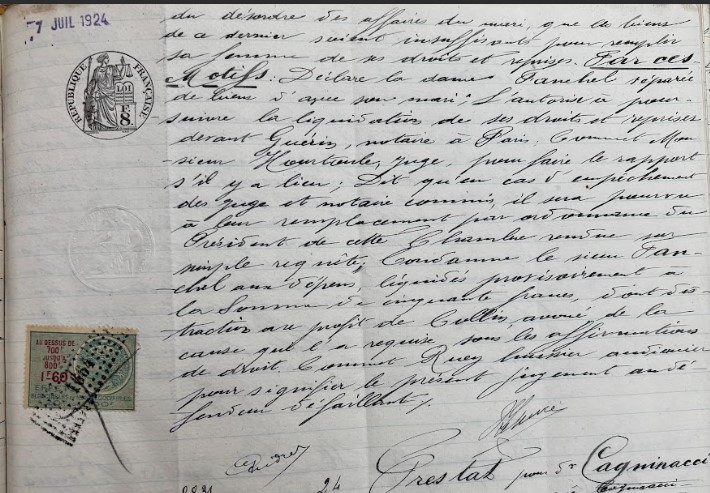 7 JUIL 1924
RÉPUBLIQUE FRANÇAISE
LOI
F
8.
du désordre des affaires du mari, que les biens
de ce dernier soient insuffisants pour remplir
sa femme de ses droits et reprises. Par ces
Motifs: Déclare la dame séparée
de biens d'avec son mari; L'autorise à pour-
suivre la liquidation de ses droits et reprises
devant Guérin, notaire à Paris; Commet Mon-
sieur juge, pour faire le rapport
s'il y a lieu; Dit qu'en cas d'empêchement
des juge et notaire commis, il sera pourvu
à leur remplacement par ordonnance du
Président de cette Chambre rendue sur
simple requête; Condamne le sieur
aux dépens, liquidés provisoirement à
la somme de cinquante francs, dont dis-
traction au profit de Collin, avoué de la
cause qui l'a requise, sous les affirmations
de droit. Commet huissier audiencier
pour signifier le présent jugement au dé-
fendeur défaillant.
AU DESSUS DE
700F
JUSQU'À
800F
1F60
Prestat pour Sr Cagninacci